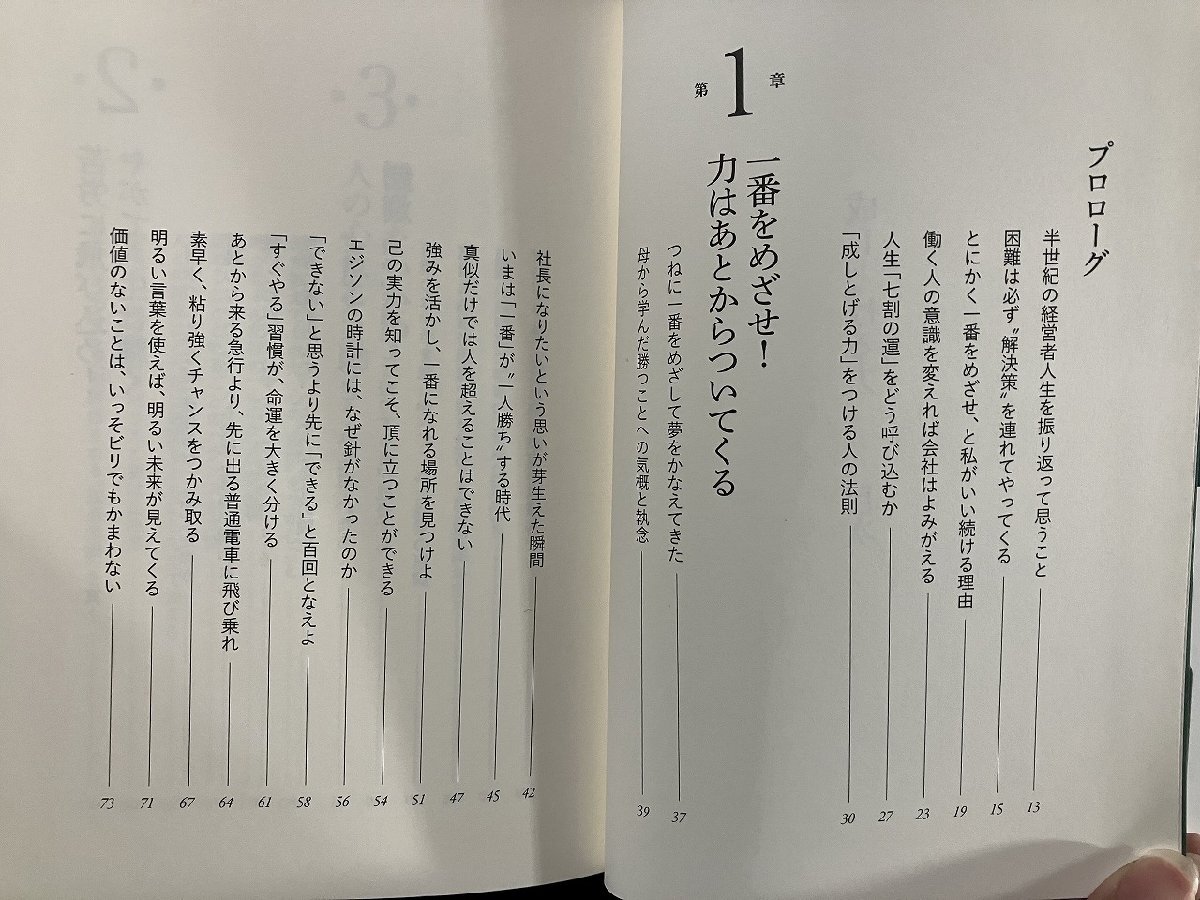 プロローグ
半世紀の経営者人生を振り返って思うこと 13
困難は必ず〝解決策〟を連れてやってくる 15
とにかく一番をめざせ、と私がいい続ける理由 19
働く人の意識を変えれば会社はよみがえる 23
人生「七割の運」をどう呼び込むか 27
「成しとげる力」をつける人の法則 30
第1章
一番をめざせ!
力はあとからついてくる
つねに一番をめざして夢をかなえてきた 37
母から学んだ勝つことへの気概と執念 39
社長になりたいという思いが芽生えた瞬間 42
いまは「一番」が〝一人勝ち〟する時代 45
真似だけでは人を超えることはできない 47
強みを活かし、一番になれる場所を見つけよ 51
己の実力を知ってこそ、頂に立つことができる 54
エジソンの時計には、なぜ針がなかったのか 56
「できない」と思うより先に「できる」と百回となえよ 58
「すぐやる」習慣が、命運を大きく分ける 61
あとから来る急行より、先に出る普通電車に飛び乗れ 64
素早く、粘り強くチャンスをつかみ取る 67
明るい言葉を使えば、明るい未来が見えてくる 71
価値のないことは、いっそビリでもかまわない 73